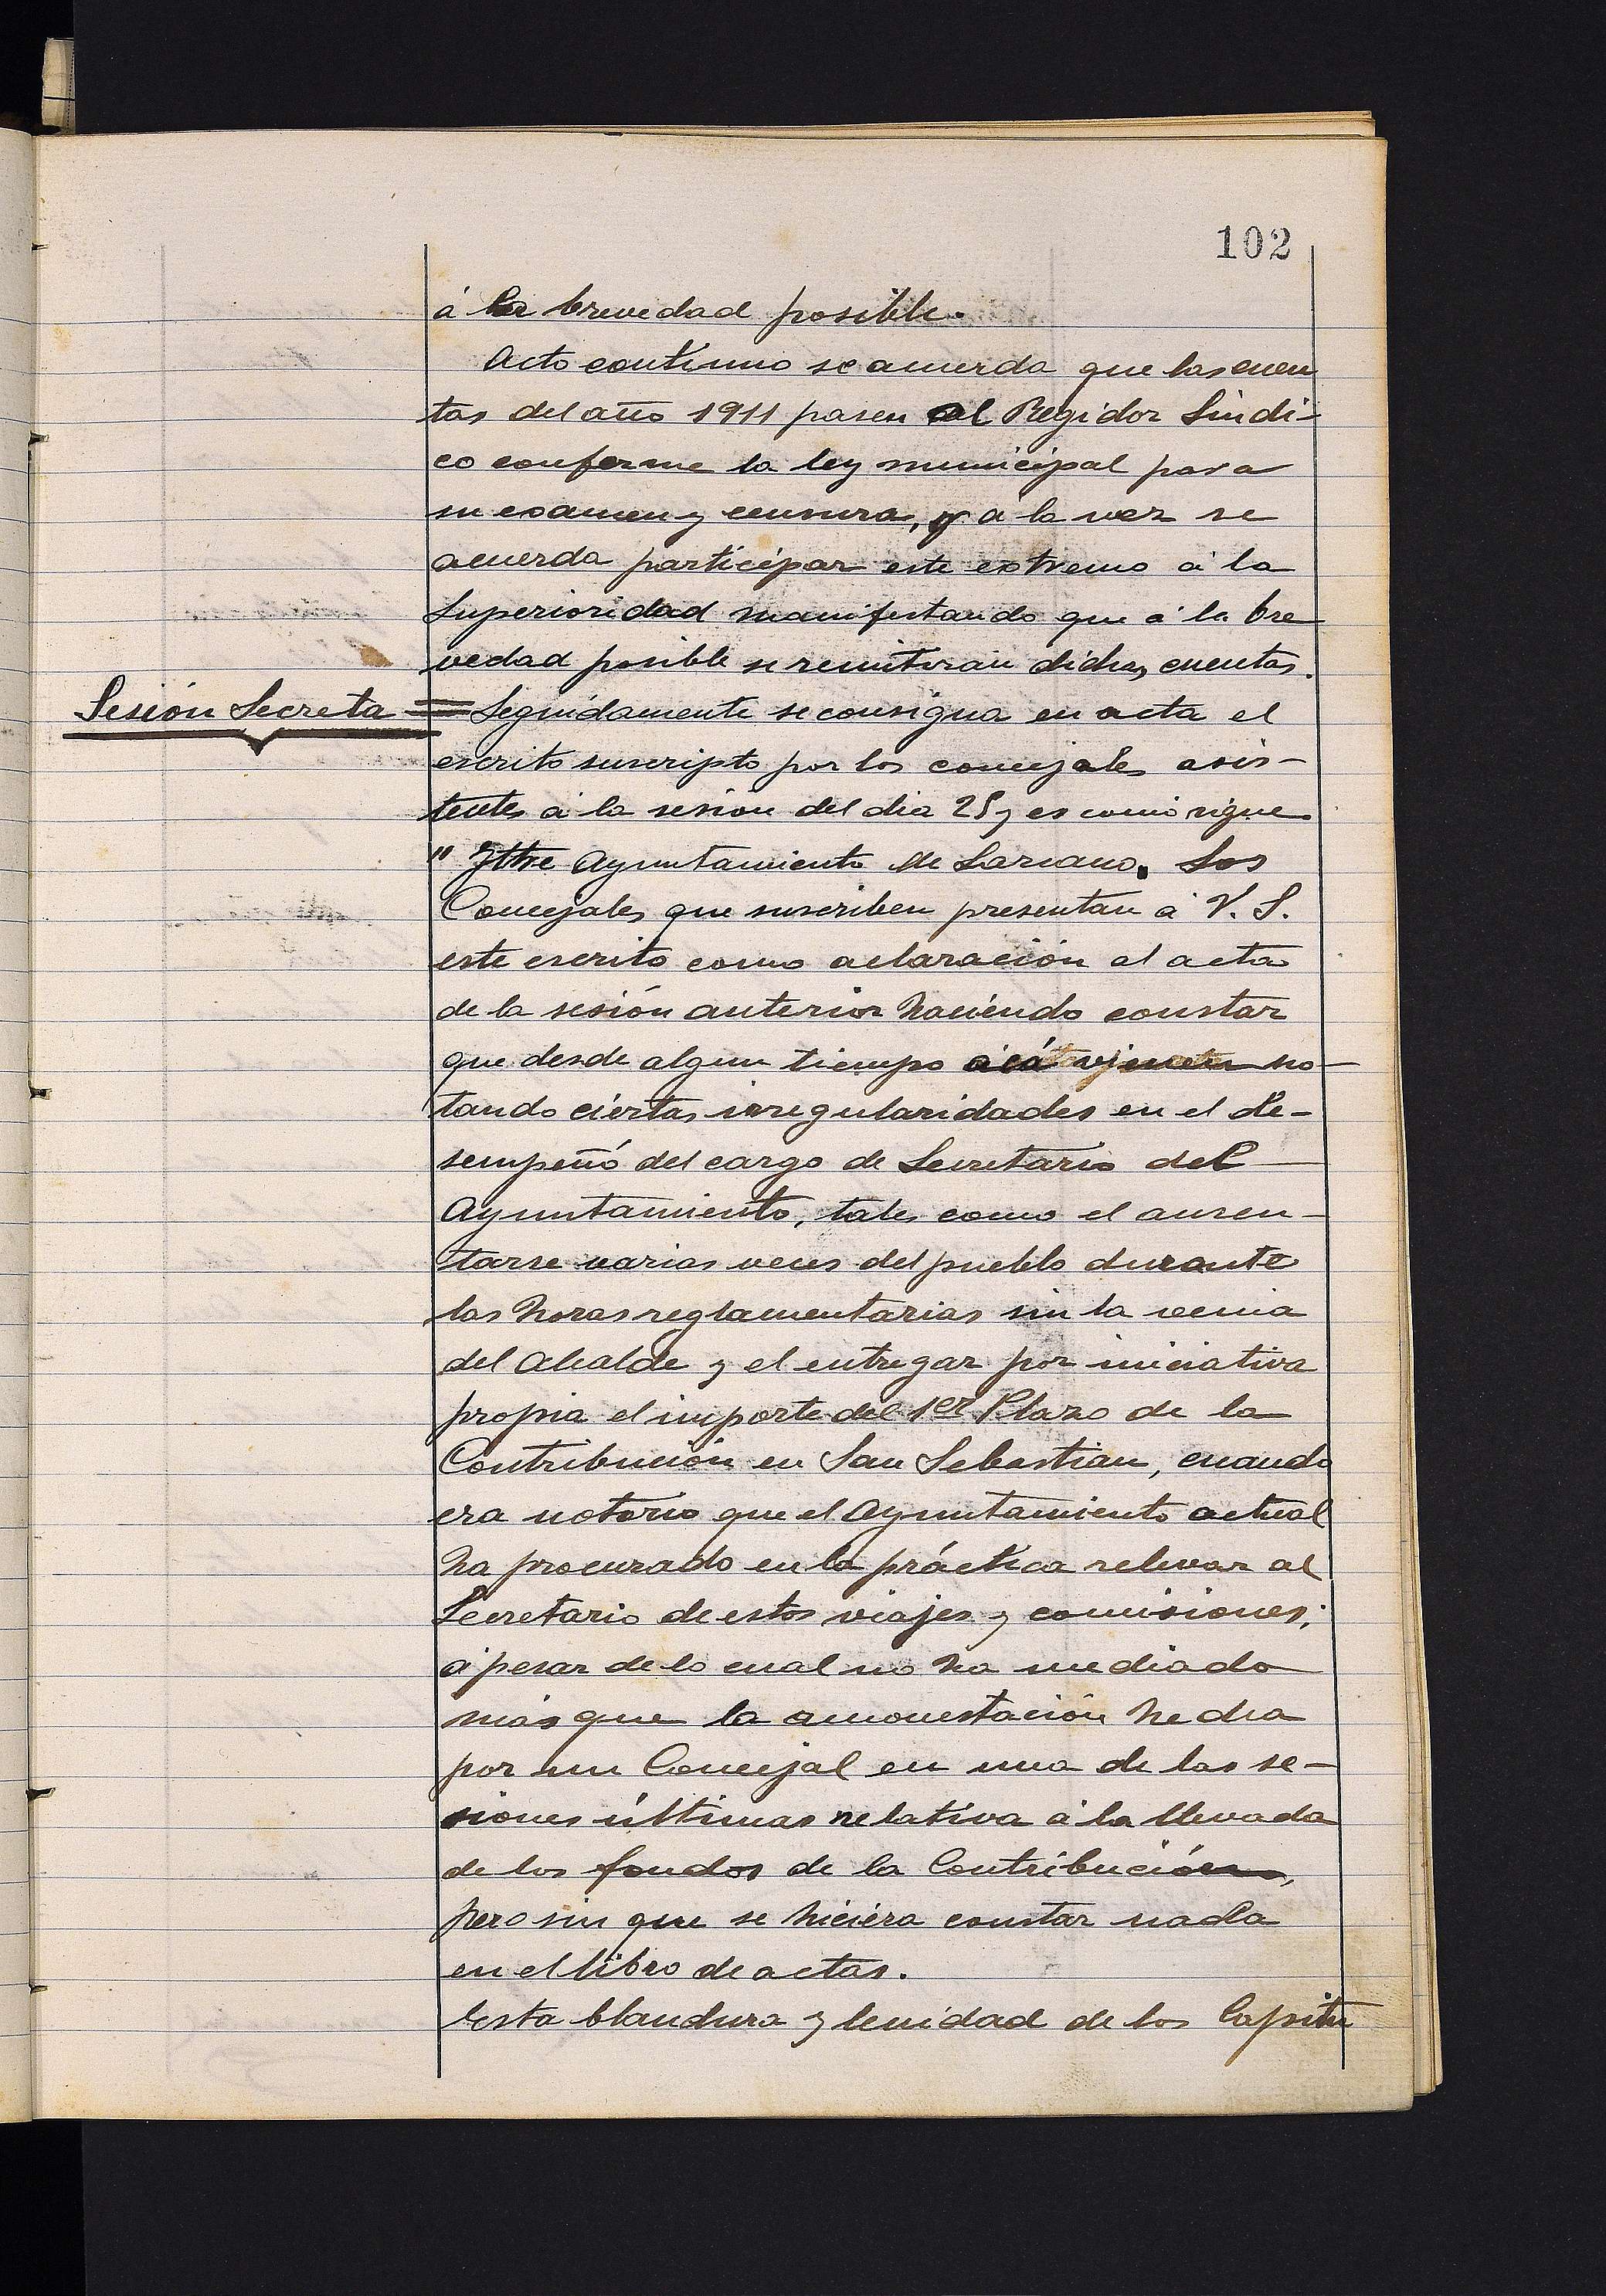 102
á la brevedad posible.
Acto continuo se acuerda que las cuen
tas del año 1911 pasen al Regidor Sindi-
co conforme la ley municipal para
su examen y censura, y a la vez se
acuerda participar este extremo á la
Superioridad manifestando que á la bre
vedad posible se remitiran dichas cuentas.
Sesión Secreta = Seguidamente se consigna en acta el
escrito suscripto por los concejales asis-
tentes á la sesión del dia 25 y es como sigue
" Iltre Ayuntamiento de Lazcano. Los
Concejales que suscriben presentan á V. S.
este escrito como aclaración al acta
de la sesión anterior haciendo constar
que desde algun tiempo acá no-
tando ciertas irregularidades en el de-
sempeñó del cargo de Secretario del
Ayuntamiento, tales como el ausen-
tarse varias veces del pueblo durante
las horas reglamentarias sin la venia
del Alcalde y el entregar por iniciativa
propia el importe del 1er Plazo de la
Contribución en San Sebastian, cuando
era notorio que el Ayuntamiento actual
ha procurado en la práctica relevar al
Secretario de estos viajes y comisiones;
á pesar de lo cual no ha mediado
más que la amonestación hecha
por un Concejal en una de las se-
siones últimas relativa á la llevada
de los fondos de la Contribución,
pero sin que se hiciera constar nada
en el libro de actas.
Esta blandura y lenidad de los Capitu